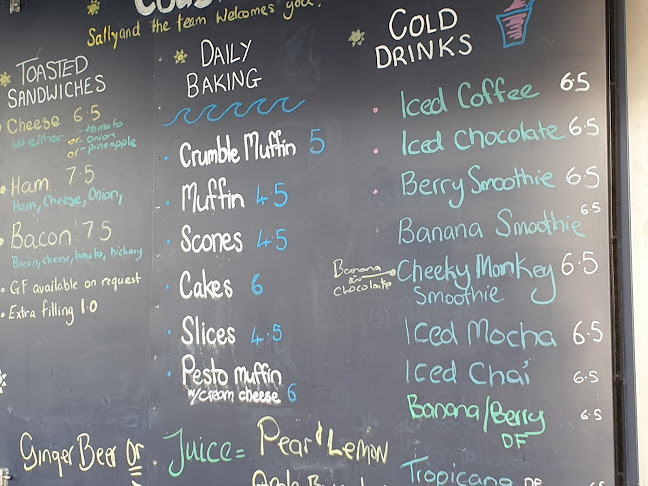 Sally and the team welcomes you!
TOASTED
SANDWICHES
Cheese 6.5
W either - tomato
or - onion
or - pineapple
Ham 7.5
Ham, Cheese, Onion,
Bacon 7.5
Bacon, cheese, tomato, hickory
GF available on request
Extra filling 1.0
DAILY
BAKING
Crumble Muffin 5
Muffin 4.5
Scones 4.5
Cakes 6
Slices 4.5
Pesto muffin
w/cream cheese 6
COLD
DRINKS
Iced Coffee 6.5
Iced Chocolate 6.5
Berry Smoothie 6.5
Banana Smoothie 6.5
Banana
chocolate
Cheeky Monkey 6.5
Smoothie
Iced Mocha 6.5
Iced Chai 6.5
Banana/Berry 6.5
DF
Ginger Beer or
Juice = Pear & Lemon
Tropicana DF